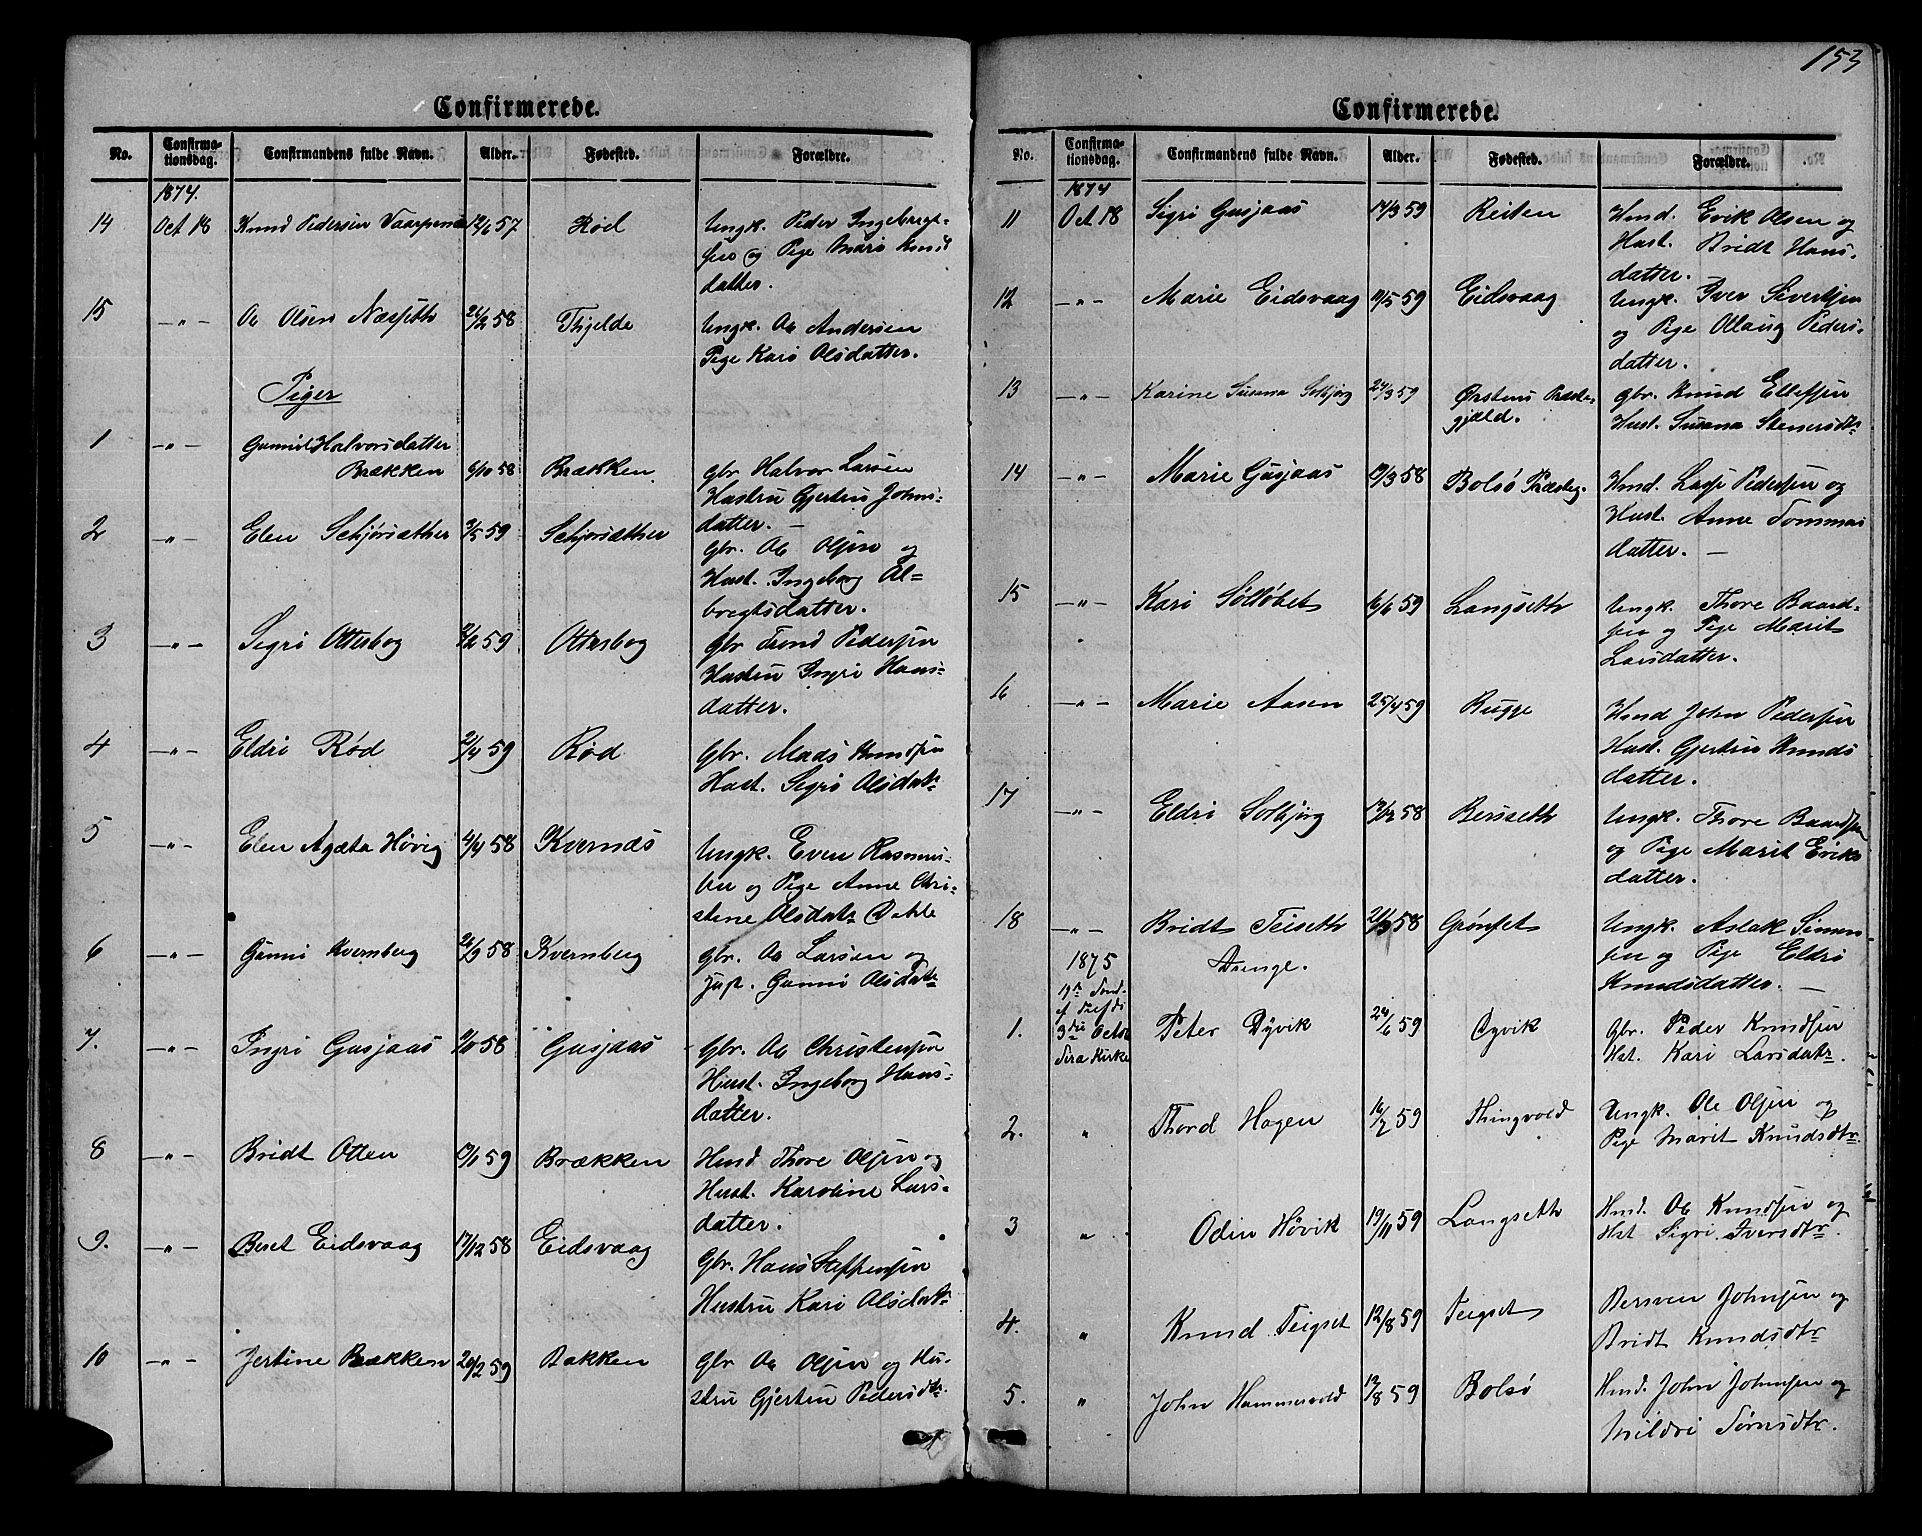 153
Confirmerede.
No. Confirma- tionsdag. Confirmandens fulde Navn. Alder. Fødested. Forældre.
1874.
14 Oct 18 Knud Pedersen 12/6 57 Rød Ungk. Peder Ingebrigt-
sen og Pige Mari Knuds
datter.
15 -"- Ole Olsen Næsseth 24/2 58 Thjelde Ungk. Ole Andersen
Pige Kari Olsdatter.
Piger
1 -"- Gunnild Halvorsdatter
Brækken 6/10 58 Brækken. gbr Halvor Larsen
Hustru Gjertru Johns-
datter. —
2 -"- Elen Schjørsæther 3/5 59 Schjorsæther Gbr. Ole Olsen og
Hust. Ingeborg El-
bregtsdatter.
3 -"- Sigri Ottersbog 2/2 59 Ottersbog Gbr Trond Pedersen
Hustru Ingri Hans-
datter.
4 -"- Eldri Rød 2/4 59 Rød Gbr. Mads Knudsen
Hust. Sigri Olsdatr
5 -"- Elen Agata Høvig 4/4 58 Kvernæs Ungk. Even Rasmus-
sen og Pige Anne Chri-
stine Olsdatr Dahle
6 -"- Gunni Kvernberg 26/9 58 Kvernberg gbr. Ole Larsen og
Gunni Olsdatr
7. -"- Ingri Gusjaas 58 Gusjaas Gbr. Ole Christensen
Hust. Ingeborg Hans-
datter.
8 -"- Bridt Otten 59 Brækken Hmd Thore Olsen og
Hust. Karoline Lars-
datter.
9. -"- Beret Eidsvaag 17/12 58 Eidsvaag Gbr. Hans Steffensen
Hustru Kari Olsdatr
10 -"- Jertine Brækken 20/2 59 Bakken Gbr Ole Olsen og Hu-
stru Gjertru Pedersdtr.
Confirmerede.
No. Confirma- tionsdag. Confirmandens fulde Navn. Alder. Fødested. Forældre.
1874
11 Oct 18 Sigri Gusjaas 14/3 59 Reiten Hmd. Erik Olsen og
Hust. Bridt Hans-
datter.
12 -"- Marie Eidsvaag 11/5 59 Eidsvaag Ungk. Iver Sivertsen
og Pige Olaug Peders-
datter.
13 -"- Karine Susana Solbjørg 24/3 59 Ørstens Præste-
gjæld. gbr. Knud Ellefsen
Hust. Susana Stenersdtr
14 -"- Marie Gusjaas 19/3 58 Bolsø Præsteg. Hmd. Lasse Pedersen og
Hust. Anne Tommas
datter. —
15 -"- Kari Solløbet 16/6 59 Langseth Ungk. Thore Baard-
sen og Pige Marit
Larsdatter.
16 -"- Marie Aasen 25/4 59 Bugge Hmd John Pedersen
Hust. Gjertru Knuds
datter.
17 -"- Eldri Solbjørg 12/12 58 Berseth Ungk. Thore Baardsen
og Pige Marit Eriks
datter.
18 -"- Bridt Teiseth 21/3 58 Grønset Ungk. Aslak Simon-
sen og Pige Eldri
Knudsdatter. —
1875 Drenge.
19de Sønd.
ef Trefdi
1. 3die Octob Peter Dyvik 29/6 59 Dyvik Gbr. Peder Knudsen
Sira Kirke Hst. Kari Larsdatr.
2. " Thord Hagen 16/7 59 Thingvold Ungk. Ole Olsen og
Pige Marit Knudsdtr.
3 " Odin Høvik 19/11 59 Langseth Hmd. Ole Knudsen og
Hst Sigri Iversdtr.
4. " Knud Teigset 12/8 59 Teigset Bersven Johnsen og
Bridt Knudsdtr
5. " John Hammervold 12/8 59 Bolsø Hmd. John Johnsen og
Mildri Sørnsdtr.